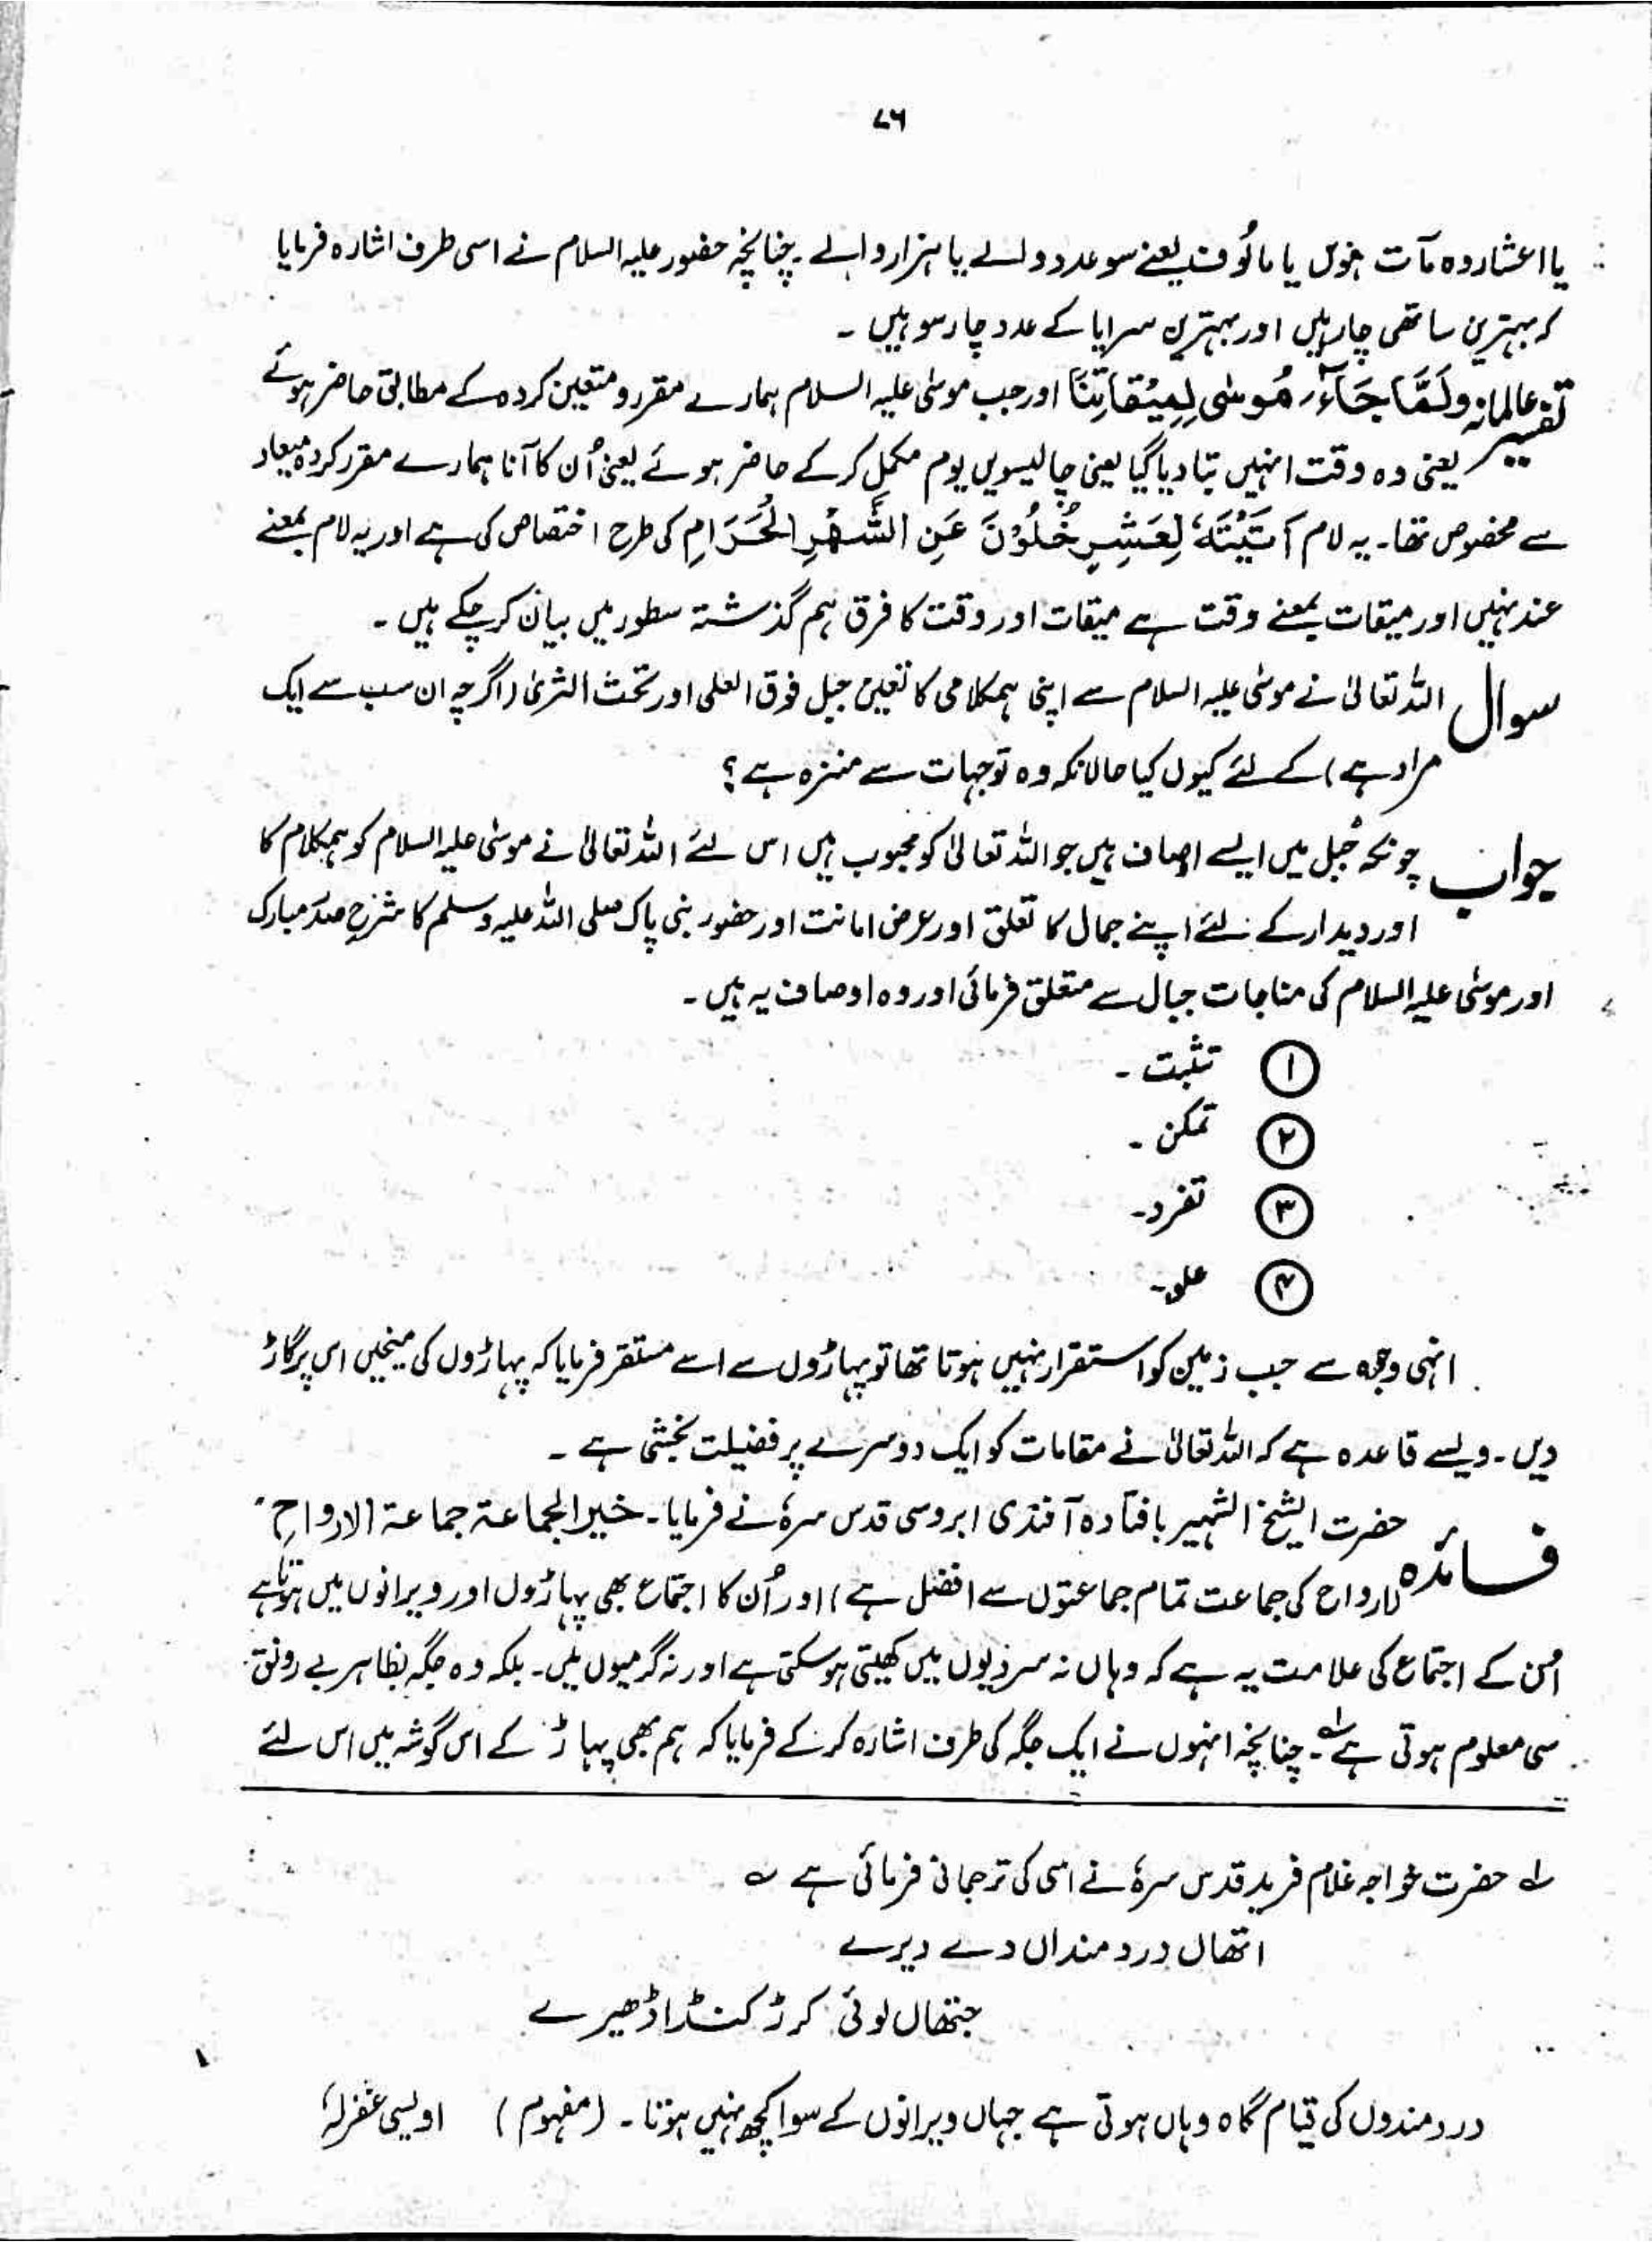 ۷۶
یا اعشار وہ مآت ہوں یا ماٗلوف یعنے سو عدد والے یا ہزار والے ۔ چنانچہ حضور علیہ السلام نے اسی طرف اشارہ فرمایا
کہ بہترین ساتھی چار ہیں اور بہترین سرایا کے عدد چار سو ہیں ۔
تفسیر عالمانہ وَلَمَّا جَآءَ مُوسٰی لِمِیْقَاتِنَا اور جب موسٰی علیہ السلام ہمارے مقرر و متعین کردہ کے مطابق حاضر ہوئے
یعنی وہ وقت انہیں بتا دیا گیا یعنی چالیسویں یوم مکمل کر کے حاضر ہوئے یعنی اُن کا آنا ہمارے مقرر کردہ میعاد
سے مخصوص تھا ۔ یہ لام اَتَیْتُہٗ لِعَشْرٍ خُلُوْنَ عَنِ الشَّھْرِ الْحَرَامِ کی طرح اختصاص کی ہے اور یہ لام بمعنے
عند نہیں اور میقات بمعنے وقت ہے میقات اور وقت کا فرق ہم گذشتہ سطور میں بیان کر چکے ہیں ۔
سوال اللہ تعالیٰ نے موسٰی علیہ السلام سے اپنی ہمکلامی کا تعین جبل فوق العلی اور تحت الثریٰ (اگرچہ ان سب سے ایک
مراد ہے) کے لئے کیوں کیا حالانکہ وہ تو جہات سے منزہ ہے ؟
جواب چونکہ جُبل میں ایسے اوصاف ہیں جو اللہ تعالیٰ کو محبوب ہیں اس لئے اللہ تعالیٰ نے موسٰی علیہ السلام کو ہمکلام کا
اور دیدار کے لئے اپنے جمال کا تعلق اور عرض امانت اور حضور نبی پاک صلی اللہ علیہ وسلم کا شرح صدر مبارک
اور موسٰی علیہ السلام کی مناجات جبال سے متعلق فرمائی اور وہ اوصاف یہ ہیں ۔
۱ تثبت ۔
۲ تمکن ۔
۳ تفرد ۔
۴ علو ۔
انہی وجوہ سے جب زمین کو استقرار نہیں ہوتا تھا تو پہاڑوں سے اسے مستقر فرمایا کہ پہاڑوں کی میخیں اس پر گاڑ
دیں ۔ ویسے قاعدہ ہے کہ اللہ تعالیٰ نے مقامات کو ایک دوسرے پر فضیلت بخشی ہے ۔
فائدہ حضرت الشیخ الشہیر بافتادہ آفندی ابروسی قدس سرہٗ نے فرمایا ۔ خیر الجماعۃ جماعۃ الارواح
(ارواح کی جماعت تمام جماعتوں سے افضل ہے) اور اُن کا اجتماع بھی پہاڑوں اور ویرانوں میں ہوتا ہے
اُن کے اجتماع کی علامت یہ ہے کہ وہاں نہ سردیوں میں کھیتی ہو سکتی ہے اور نہ گرمیوں میں ۔ بلکہ وہ جگہ بظاہر بے رونق
سی معلوم ہوتی ہے ؎۱ ۔ چنانچہ انہوں نے ایک جگہ کی طرف اشارہ کر کے فرمایا کہ ہم بھی پہاڑ کے اس گوشہ میں اس لئے
؎۱ حضرت خواجہ غلام فرید قدس سرہٗ نے اسی کی ترجمانی فرمائی ہے ؎
اتھاں دردمنداں دے دیرے
جتھاں لوئی کرڑ کنڈا ڈھیرے
دردمندوں کی قیام گاہ وہاں ہوتی ہے جہاں ویرانوں کے سوا کچھ نہیں ہوتا ۔ (مفہوم) اویسی غفرلہٗ